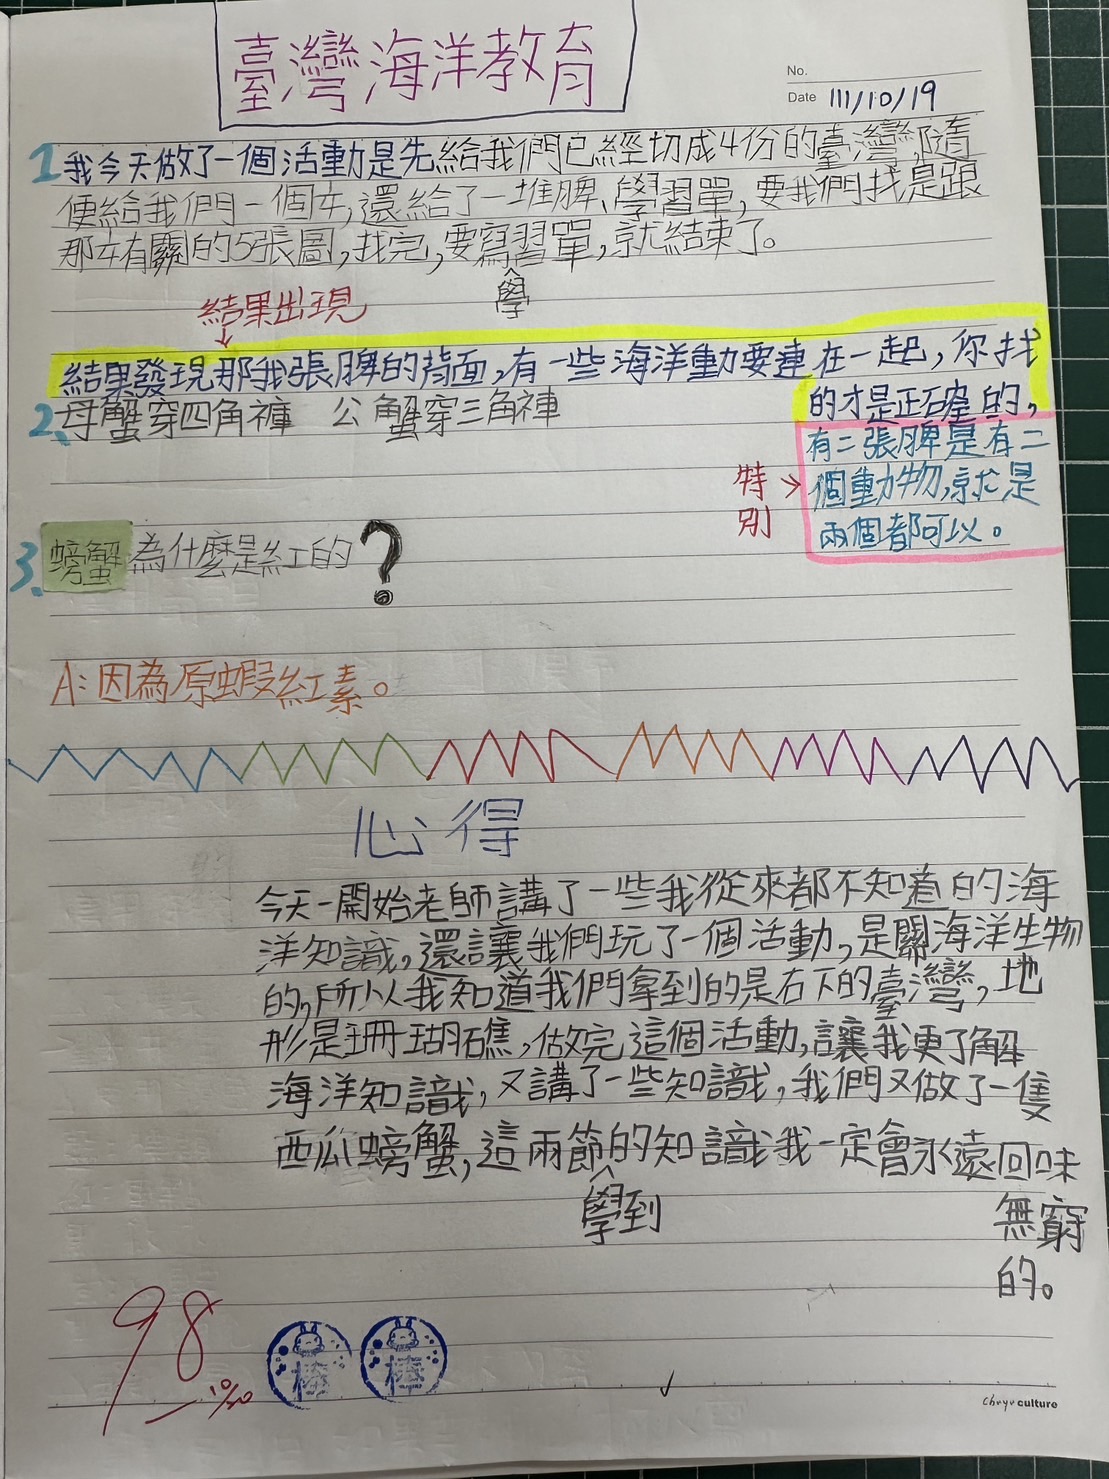 臺灣海洋教育
No.
Date 111/10/19
1 我今天做了一個活動是先給我們已經切成4份的臺灣,隨
便給我們一個,還給了一堆脾、學習單,要我們找是跟
那有關的5張圖,找完,要寫習單,就結束了。
學
結果出現
結果發現那我張脾的背面,有一些海洋動要連在一起,你找
的才是正確的,
2、母蟹穿四角褲 公蟹穿三角褲
有二張脾是有二
特別
個動物,就是
兩個都可以。
3、螃蟹為什麼是紅的?
A:因為原蝦紅素。
心得
今天一開始老師講了一些我從來都不知道的海
洋知識,還讓我們玩了一個活動,是關海洋生物
的,所以我知道我們拿到的是右下的臺灣,地
形是珊瑚礁,做完這個活動,讓我更了解
海洋知識,又講了一些知識,我們又做了一隻
西瓜螃蟹,這兩節的知識我一定會永遠回味
學到
無窮
的。
98
10/20
棒 棒
culture